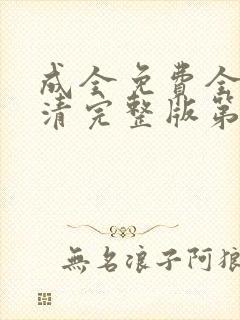 成全免費全
清完整版第
無名浪子阿狼